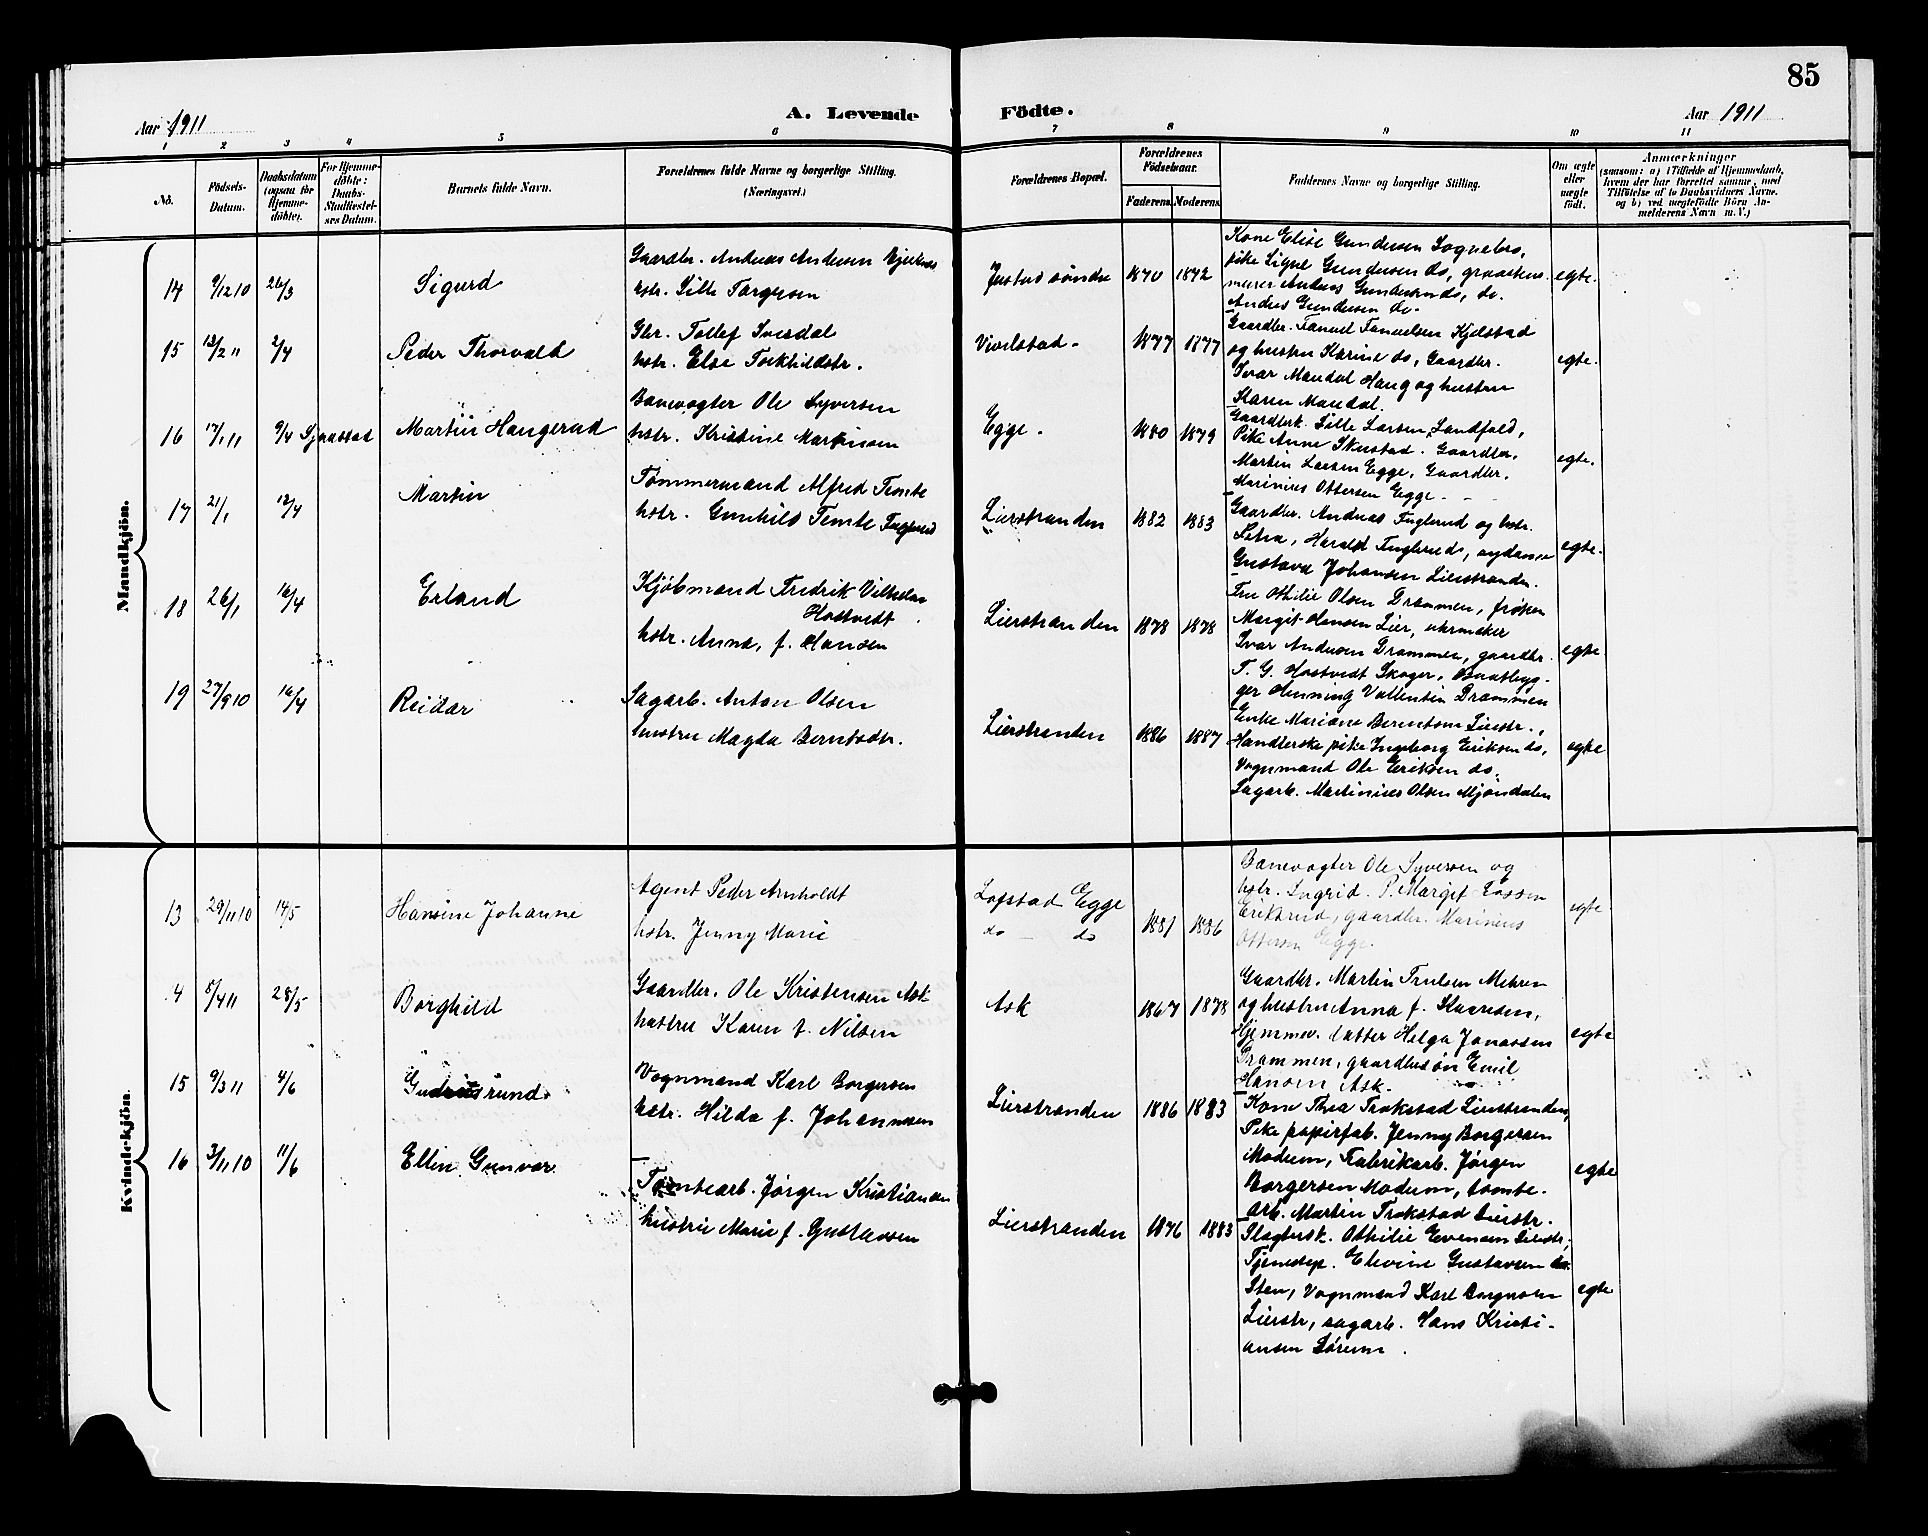 85
Aar 1911
A. Levende
Födte.
Aar 1911
1 2 3 4 5 6 7 8 9 10 11
No.
Födsels-
Datum.
Daabsdatum
(ogsaa for
Hjemme-
döbte).
For Hjemme-
döbte:
Daabs-
Stadfæstel-
ses Datum.
Barnets fulde Navn.
Forældrenes fulde Navne og borgerlige Stilling.
(Næringsvei.)
Forældrenes Bopæl.
Forældrenes
Födselsaar.
Faderens. Moderens.
Faddernes Navne og borgerlige Stilling.
Om ægte
eller
uægte
født.
Anmærkninger
(saasom: a) i Tilfælde af Hjemmedaab,
hvem der har forrettet samme, med
Tilföielse af to Daabsvidners Navne.
og b) ved uægtefödte Börn An-
melderens Navn m. V.)
Mandkjön.
14 9/12 10 26/3 Sigurd
Gaardbr. Andreas Andersen
hstr. Lille Torgersen
Justad söndre 1870 1872
Kone Elise Gundersen Sognebro,
pike Signe Gundersen do,
murer Anders Gundersen do,
Anders Gundersen do.
egte.
15 13/2 11 2/4 Peder Thorvald
Gbr. Tollef
hstr. Else Torkhildstr.
Vivelstad. 1877 1877
Gaardbr. Fanuel Fanuelsen Kjelstad
og hustru Karine do, Gaardbr.
Ivar Mandal Haug og hustru
Karen Mandal.
egte.
16 17/1 11 9/4 Martin Haugerud
Banevogter Ole Syversen
hstr. Kristine Martinsen
Egge. 1880 1879
Gaardbrk. Lille Larsen Landfald,
Pike Anne Skustad. Gaardbr.
Martin Larsen Egge, Gaardbr.
Marinius Ottersen Egge.
egte.
17 21/1 12/4 Martin
Tømmermand Alfred Temte
hstr. Gunhild Temte Fuglerud
Lierstranden 1882 1883
Gaardbr. Andreas Fuglerud og hstr.
Petra, Harald Fuglerud,
Gustava Johansen Lierstranden.
egte.
18 26/1 16/4 Erland
Kjöbmand Fredrik Vilhelm
Hostvedt
hstr. Anna, f. Hansen
Lierstranden 1878 1878
Fru Othilie Olsen Drammen, frøken
Margit Hansen Lier, urmaker
Ivar Andersen Drammen, gaardbr.
T. G. Hostvedt Skoger, Baatbyg-
ger Henning Vallentin Drammen
egte
19 27/9 10 16/4 Reidar
Sagarb. Anton Olsen
hustru Magda Berntsdtr.
Lierstranden 1886 1887
Enke Mariane Berentsen Lierstr.,
Handlerske pike Ingeborg Eriksen do,
Vognmand Ole Eriksen do,
Sagarb. Martinius Olsen Mjöndalen
egte
Kvindekjön.
13 29/11 10 14/5 Hansine Johanne
Agent Peder Arnholdt
hstr. Jenny Marie
Lofstad Egge
do — do
1881 1886
Banevogter Ole Syversen og
hstr. Ingrid. P. Margit Lassen
Eriksrud, gaardbr. Marinius
Ottersen Egge.
egte
4 8/4 11 28/5 Borghild
Gaardbr. Ole Kristensen Ask
hustru Karen f. Nilsen
Ask 1867 1878
Gaardbr. Martin Trulsen Mehren
og hustru Anna f. Kaaresen,
Hjemmev. datter Helga Jonassen
Drammen, gaardbrsøn Emil
Hansen Ask.
egte
15 9/3 11 4/6
Vognmand Karl Borgersen
hstr. Hilda f. Johannesen
Lierstranden 1886 1883
Kone Thea Trokstad Lierstranden,
Pike papirfab. Jenny Borgersen
Modum, Fabrikarb. Jørgen
Borgersen Modum, tomte-
arb. Martin Trokstad Lierstr.
egte
16 3/11 10 11/6 Ellen Gunvor
Tomtearb. Jørgen Kristiansen
hustru Marie f. Gustavsen
Lierstranden 1876 1883
Slagtersk. Othilie Evensen Lierstr,
Tjenestep. Elevine Gustavsen do
Sten, Vognmand Karl Borgersen
Lierstr, sagarb. Hans Kristi-
ansen Sørum.
egte